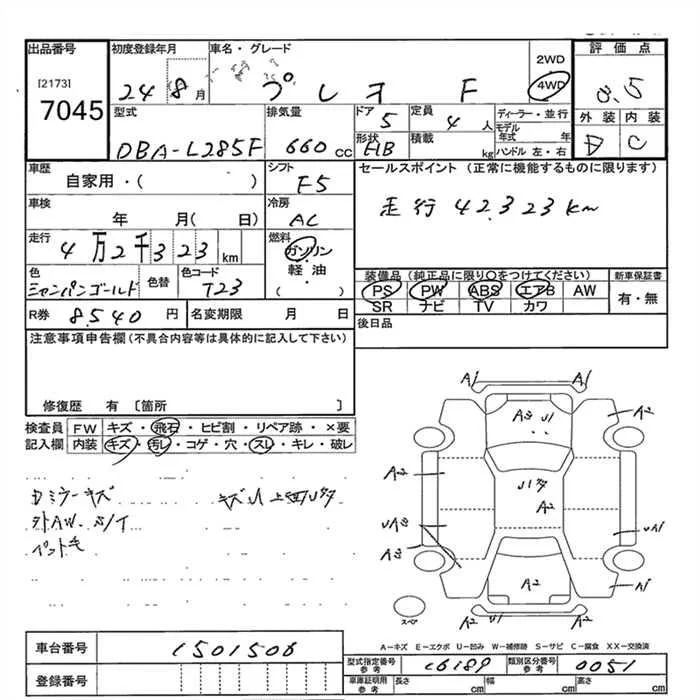 出品番号 初度登録年月 車名・グレード 2WD 評価点
[2173] 7045 24 8月 プレオ F 4WD 3.5
型式 排気量 ドア 定員 ディーラー・並行 外装 内装
DBA-L285F 660cc 5 4人 モデル年式 年 D C
形状 HB 積載 kg ハンドル 左・右
車歴 シフト セールスポイント (正常に機能するものに限ります)
自家用・( ) F5
走行 42,323km
車検 冷房
年 月(日) AC
走行 燃料
4万2千323km ガソリン
軽・油
( )
色 色替 色コード
シャンパンゴールド T23
装備品(純正品に限り○をつけてください) 新車保証書
PS PW ABS エアB AW 有・無
SR ナビ TV カワ
R券 8540円 名変期限 月 日
後日品
注意事項申告欄(不具合内容等は具体的に記入して下さい)
修復歴 有 〔箇所 〕
検査員 FW キズ・飛石・ヒビ割・リペア跡・×要
記入欄 内装 キズ・汚レ・コゲ・穴・スレ・キレ・破レ
ミラーキズ
外AW.
A1 A1
A3 U1 A2
A2 U1 A2
A3 A1
A2 A1
A2 A2
スペア
A-キズ E-エクボ U-凹み W-補修跡 S-サビ C-腐食 XX-交換済
車台番号 1501506
登録番号
型式指定番号 参考 16189 類別区分番号 参考 0051
車庫証明用 参考 長さ cm 幅 cm 高さ cm